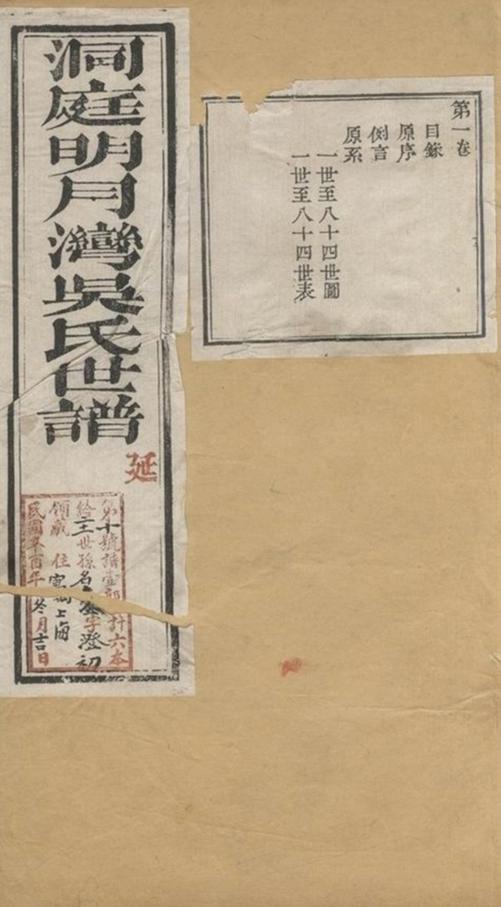 洞庭明月灣吳氏世譜
延
第十號譜壹部計六本
給 世孫名 字澄初
領藏 住 上海
民國辛酉年冬月吉日
第一卷
目錄
原序
例言
原系
一世至八十四世圖
一世至八十四世表